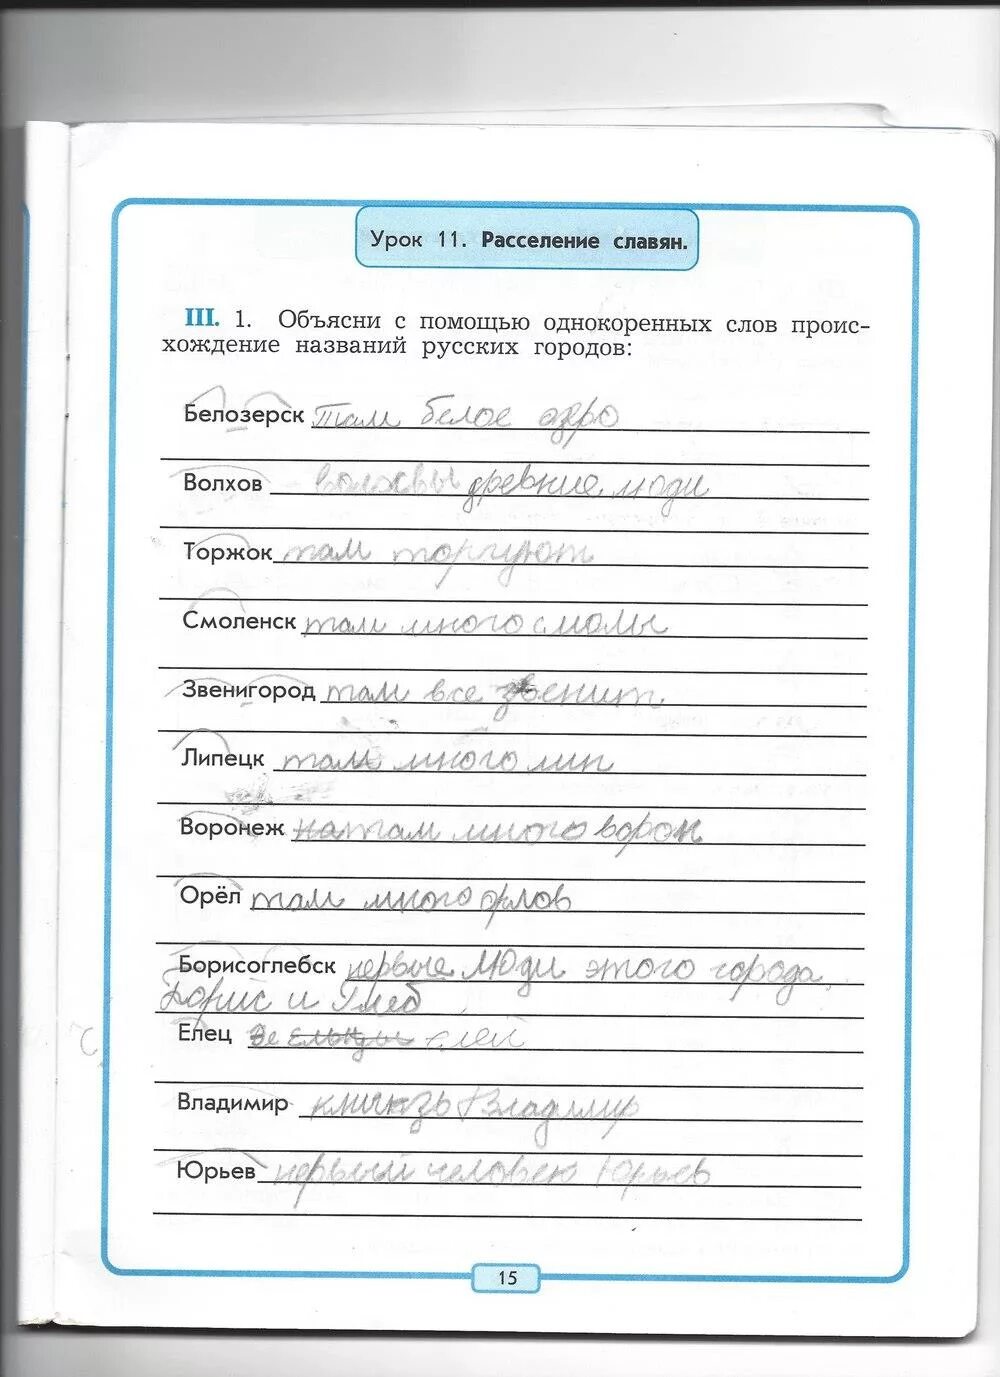 Урок 11. Расселение славян.
III. 1. Объясни с помощью однокоренных слов проис-
хождение названий русских городов:
Белозерск там белое озеро
Волхов волохвы древние люди
Торжок там торгуют
Смоленск там много смолы
Звенигород там все звенит
Липецк там много лип
Воронеж на там много ворон
Орёл там много орлов
Борисоглебск первые люди этого города
Борис и Глеб
Елец елей
Владимир князь Владимир
Юрьев первый человек Юрьев
15